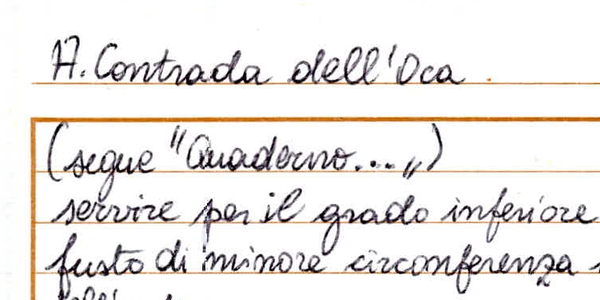 17. Contrada dell'Oca.
(segue "Quaderno...")
servire per il grado inferiore
fusto di minore circonferenza